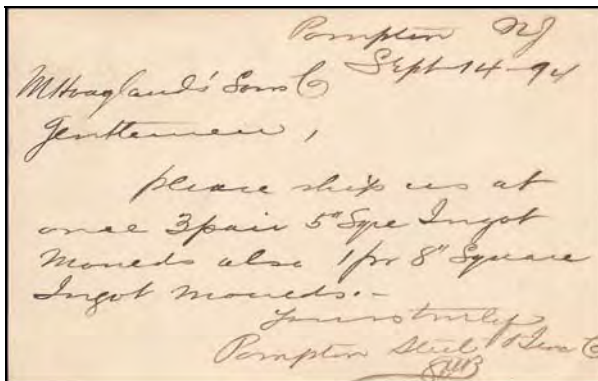 Pompton NJ
Sept 14-94
M Hoagland's Sons Co
Gentlemen,
please ship us at
once 3 pair 5" Sqre Ingot
Moueds also 1 pr 8" Square
Ingot moueds.-
Yours truly
Pompton Steel & Iron Co